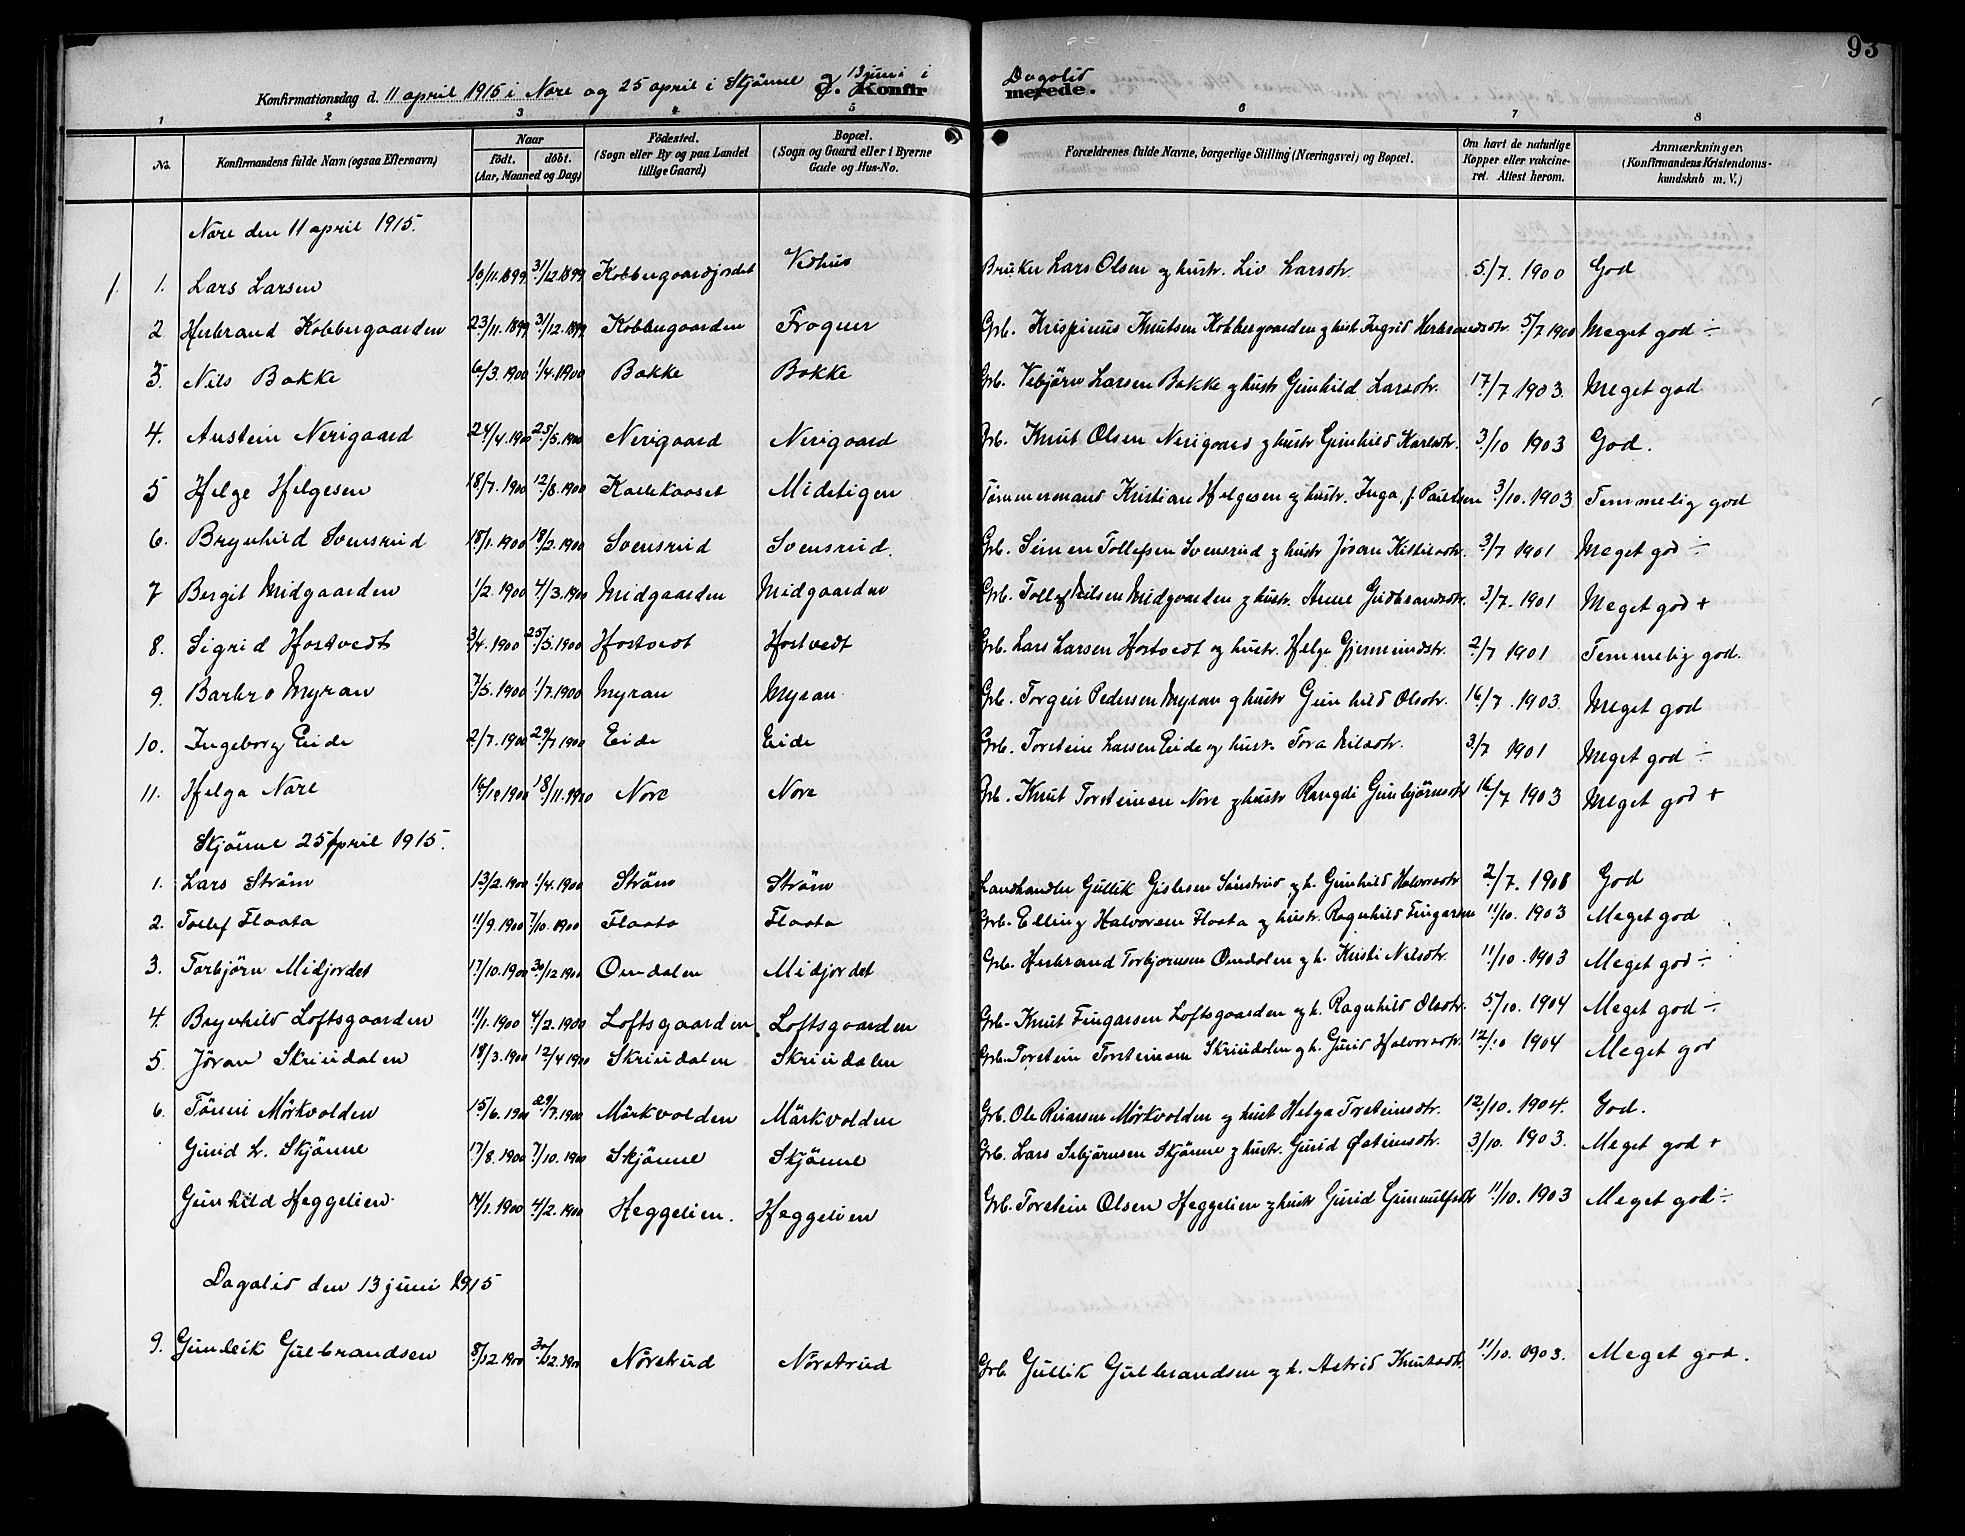 93
Konfirmationsdag d. 11 april 1915 i Nore og 25 april i Skjönne og 13 juni i Dagalid
C. Konfirmerede.
1 2 3 4 5 6 7 8
No. Konfirmandens fulde Navn (ogsaa Efternavn) Naar födt. döbt. (Aar, Maaned og Dag) Födested. (Sogn eller By og paa Landet tillige Gaard) Bopæl. (Sogn og Gaard eller i Byerne Gade og Hus-No. Forældrenes fulde Navne, borgerlige Stilling (Næringsvei) og Bopæl. Om havt de naturlige Kopper eller vakcineret. Attest herom. Anmærkninger. (Konfirmandens Kristendomskundskab m. V.)
Nore den 11 april 1915.
1. Lars Larsen 10/11.1899 31/12.1899 Kobbergaardjordet Vedhus Bruker Lars Olsen og hustr. Liv Larsdtr. 5/7. 1900 God
2 Herbrand Kobbergaarden 23/11.1899 31/12.1899 Kobbergaarden Frogner Grb. Krispinus Knutsen Kobbergaarden og hust Ingrid Herbrandsdtr. 5/7 1900 Meget god ÷
3. Nils Bakke 6/3.1900 1/4.1900 Bakke Bakke Grb. Vebjörn Larsen Bakke og hustr Gunhild Larsdtr. 17/7 1903. Meget god
4. Austein Nerigaard 24/4.1900 25/5.1900 Nerigaard Nerigaard Grb. Knut Olsen Nerigaard og hustr Gunhild Karlsdtr. 3/10 1903 God.
5 Helge Helgesen 18/7.1900 12/8.1900 Midstigen Tömmermand Kristian Helgesen og hustr. Inga f. Paulsen 3/10.1903 Temmelig god
6. Brynhild Svensrud 18/1.1900 18/2.1900 Svensrud Svensrud. Grb. Simen Tollefsen Svensrud og hustr Jöran Kittilsdtr. 3/7 1901 Meget god ÷
7 Bergit Midgaarden 1/2.1900 4/3.1900 Midgaarden Midgaarden Grb. Tollef Nilsen Midgaarden og hustr. Anne Gudbrandsdtr. 3/7.1901 Meget god +
8. Sigrid Hostvedt 3/4.1900 25/5.1900 Hostvedt Hostvedt Grb. Lars Larsen Hostvedt og hustr. Helge Gjermundsdtr. 2/7 1901 Temmelig god.
9. Barbro Myran 7/5.1900 1/7.1900 Myran Myran Grb. Torgeir Pedersen Myran og hustr Gunhild Olsdtr. 16/7.1903. Meget god
10. Ingeborg Eide 2/7.1900 29/7.1900 Eide Eide Grb. Torstein Larsen Eide og hustr. Tora Nilsdtr. 3/7 1901 Meget god ÷
11. Helga Nore 16/10.1900 18/11.1900 Nore Nore Grb. Knut Torsteinsen Nore og hustr Rangdi Gunbjörnsdtr 16/7 1903 Meget god +
Skjönne 25 April 1915.
1. Lars Ström 13/2.1900 1/4.1900 Ström Ström Landhandler Gullik Gislesen og h. Gunhild Halvorsdtr 2/7. 1908 God
2. Tollef Flaata 11/9.1900 7/10.1900 Flaata Flaata Grb. Elling Halvorsen Flaata og hustr. Ragnhild Fingarsen 11/10.1903 Meget god
3. Torbjörn Midjordet 17/10.1900 30/12.1900 Omdalen Midjordet Grb. Herbrand Torbjörnsen Omdalen og h. Kristi Nilsdtr. 11/10.1903 Meget god ÷
4. Brynhild Loftsgaarden 11/1.1900 4/2.1900 Loftsgaarden Loftsgaarden Grb. Knut Fingarsen Loftsgaarden og h. Ragnhild Olsdtr. 5/10.1904 Meget god ÷
5 Jöran Skriudalen 18/3.1900 12/4.1900 Skriudalen Skriudalen Grb. Torstein Torsteinsen Skriudalen og h. Gurid Halvorsdtr. 12/10 1904 Meget god
6. Tönni Mörkvolden 15/6.1900 29/7.1900 Mörkvolden Mörkvolden Grb. Ole Reiarsen Mörkvolden og hust Helga Torsteinsdtr. 12/10.1904. God.
Gurid L. Skjönne 17/8.1900 7/10.1900 Skjönne Skjönne Grb. Lars Sebjörnsen Skjönne og hustr. Gurid Østeinsdtr. 3/10.1903. Meget god +
Gunhild Heggelien 14/1.1900 4/2.1900 Heggelien. Heggelien Grb. Torstein Olsen Heggelien og hustr Gurid Gunnulfsdtr 11/10.1903 Meget god ÷
Dagalid den 13 juni 1915
9. Gunleik Gulbrandsen 8/12.1900 30/12.1900 Nörstrud Nörstrud Grb. Gullik Gulbrandsen og h. Astrid Knutsdtr. 11/10.1903. Meget god.